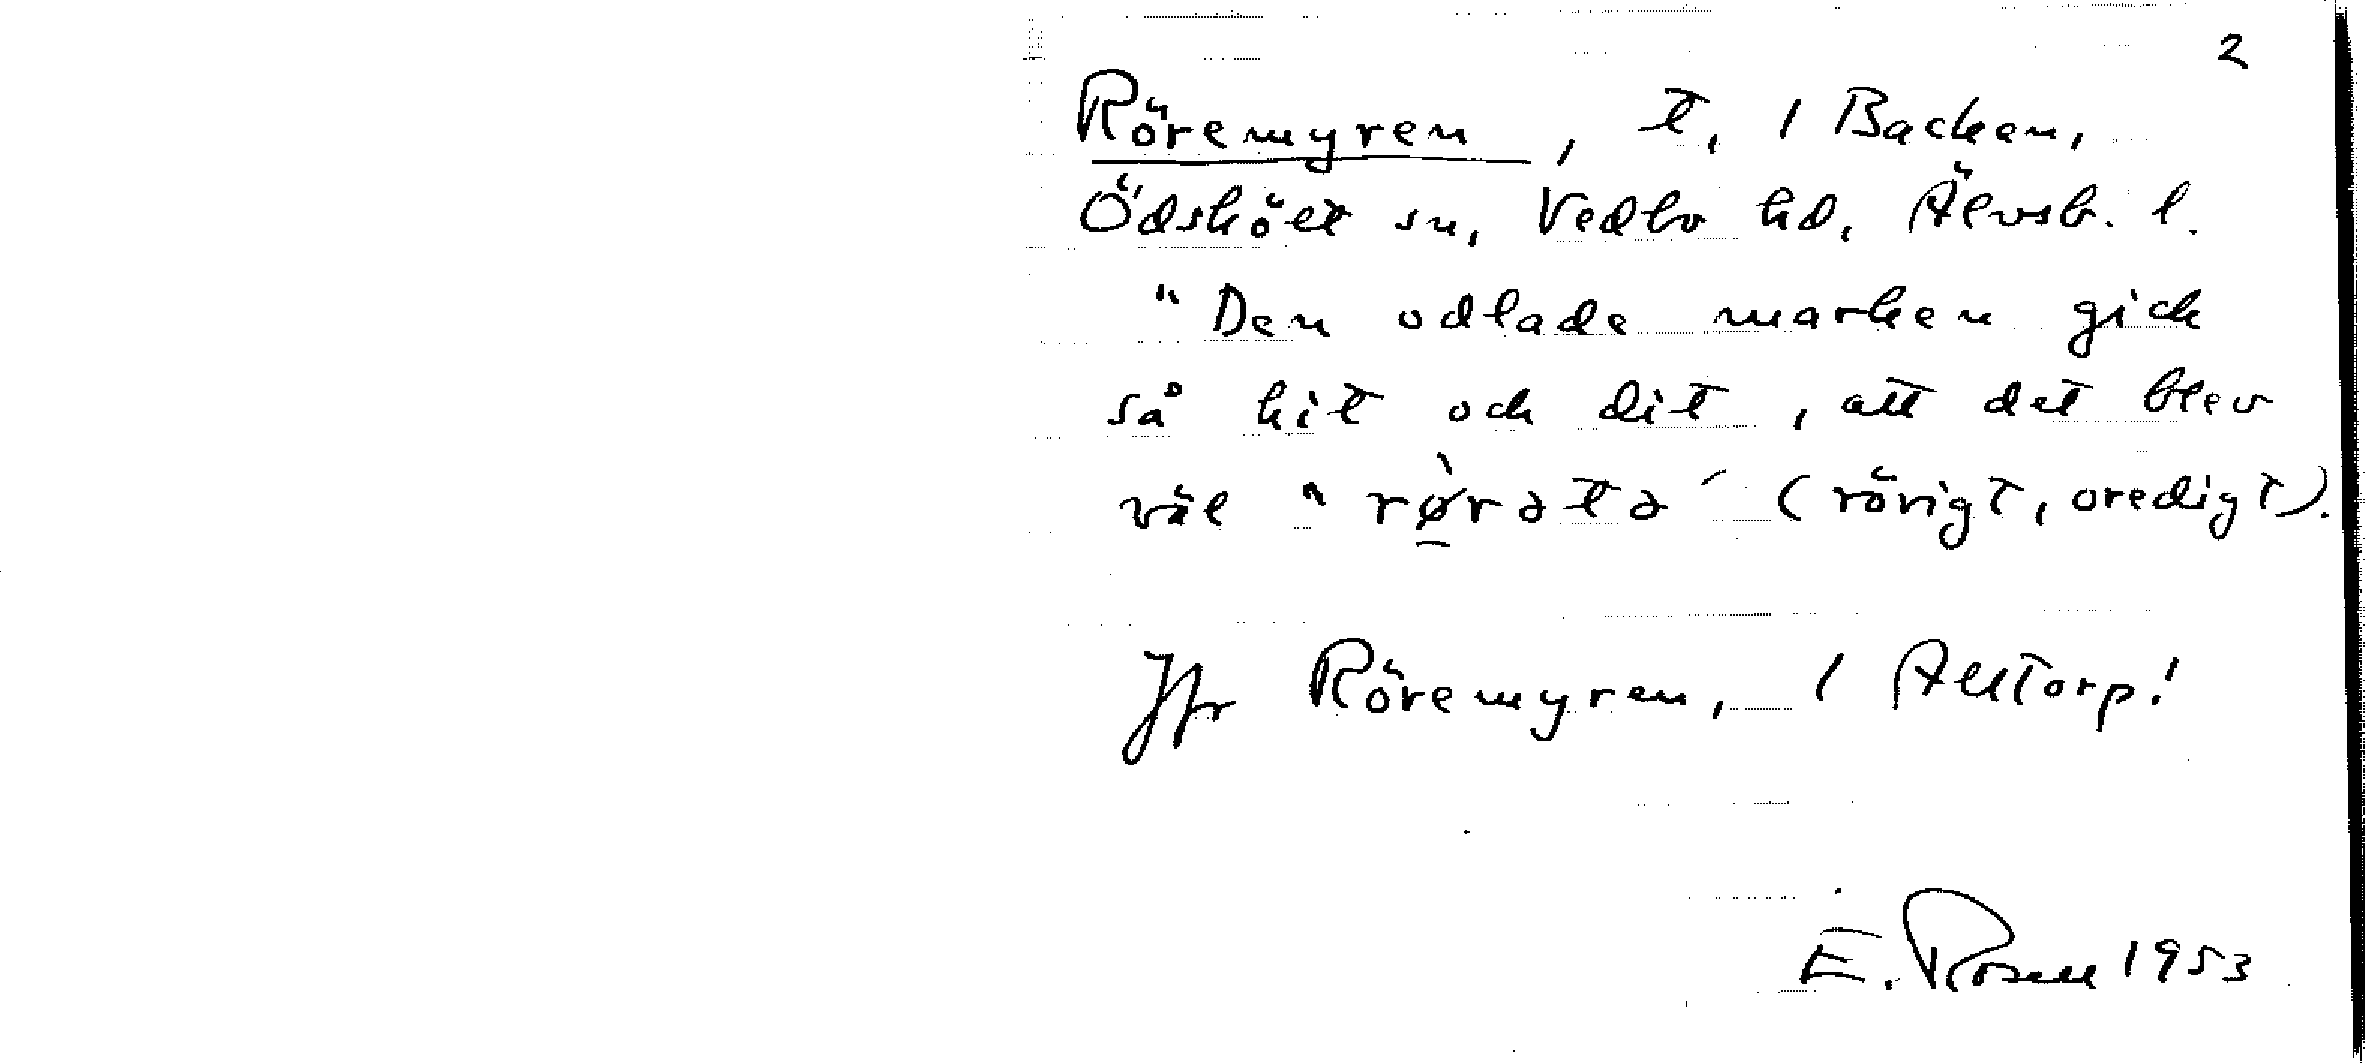 2
Röremyren, t. / Backen,
Ödskölt sn, Vedbo hd, Älvsb. l.
"Den odlade marken gick
så hit och dit, att det blev
väl "rø̱̀rətə" (rörigt, oredigt).
Jfr Röremyren, / Alltorp!
E. Rosell 1953